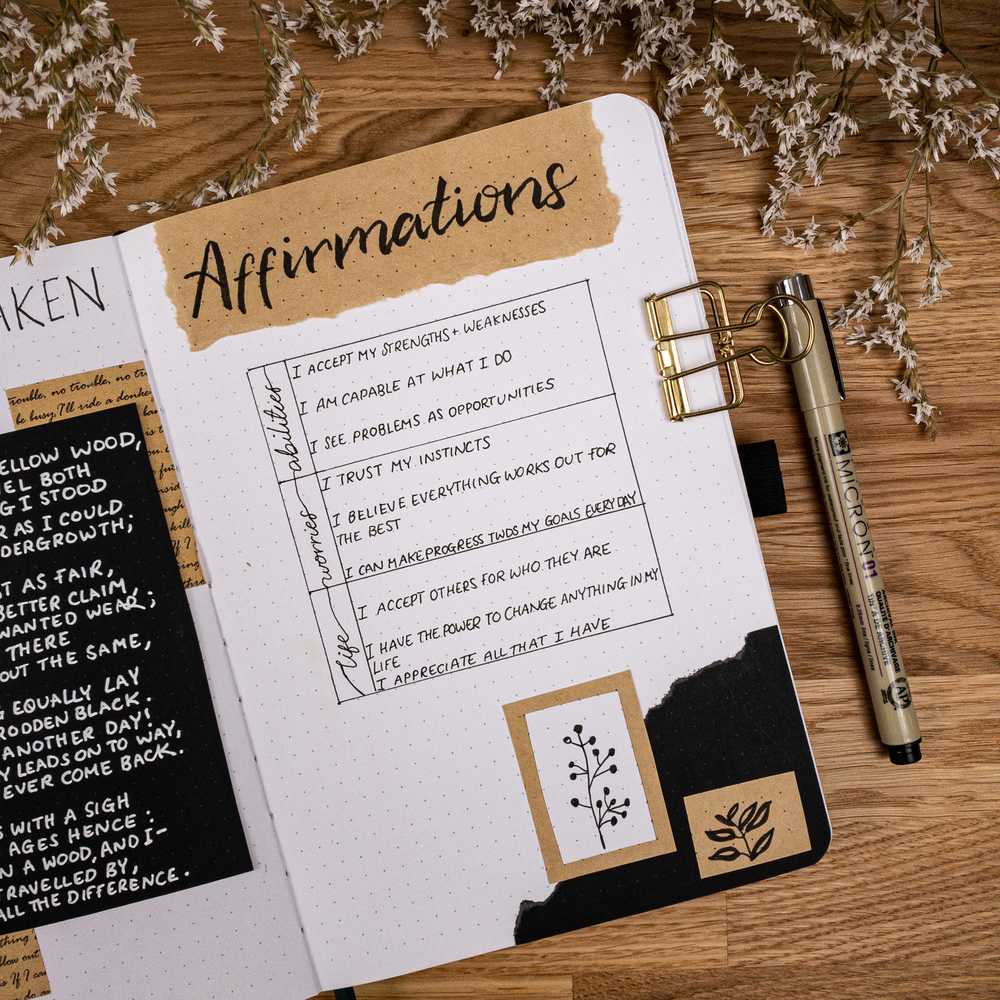 AKEN
ELLOW WOOD,
BOTH
G I STOOD
AS I COULD
DERGROWTH;
AS FAIR,
BETTER CLAIM
WANTED WEAR;
THERE
OUT THE SAME,
EQUALLY LAY
RODDEN BLACK.
ANOTHER DAY!
LEADS ON TO WAY,
EVER COME BACK.
WITH A SIGH
AGES HENCE:
N A WOOD, AND I-
TRAVELLED BY,
ALL THE DIFFERENCE.
rouble, no trouble, no tr
be busy, I'll ride a donke
Affirmations
abilities
I ACCEPT MY STRENGTHS + WEAKNESSES
I AM CAPABLE AT WHAT I DO
I SEE PROBLEMS AS OPPORTUNITIES
worries
I TRUST MY INSTINCTS
I BELIEVE EVERYTHING WORKS OUT FOR
THE BEST
I CAN MAKE PROGRESS TWDS MY GOALS EVERYDAY
life
I ACCEPT OTHERS FOR WHO THEY ARE
I HAVE THE POWER TO CHANGE ANYTHING IN MY
LIFE
I APPRECIATE ALL THAT I HAVE
MICRON 01